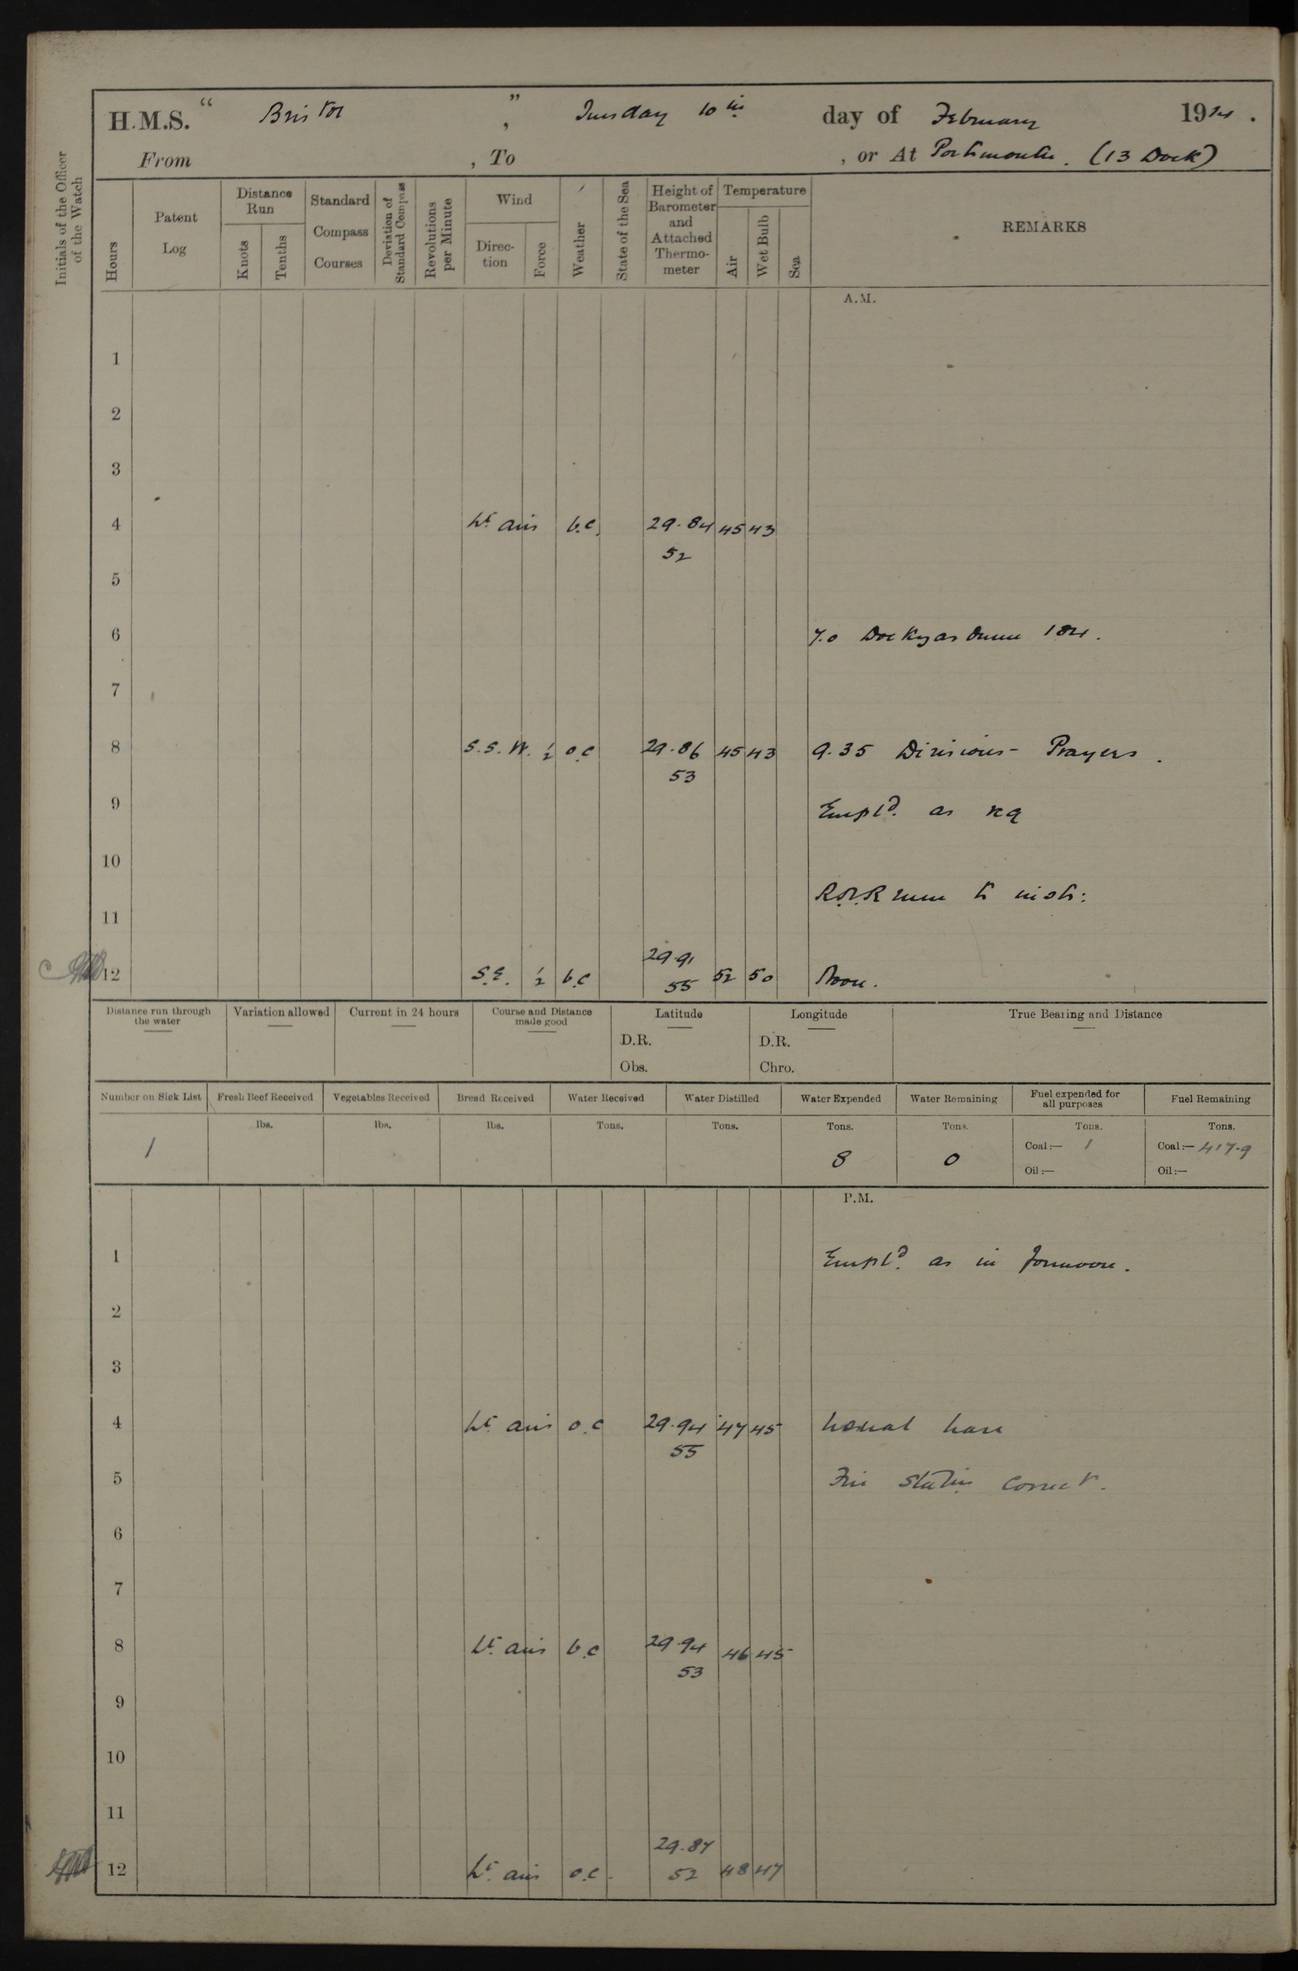 H.M.S. “ Bristol ”, Tuesday 10th day of February 1914.
From , To , or At Portsmouth. (13 Dock)
Initials of the Officer of the Watch
Hours
Patent Log
Distance Run
Knots
Tenths
Standard Compass Courses
Deviation of Standard Compass
Revolutions per Minute
Wind
Direc-tion
Force
Weather
State of the Sea
Height of Barometer and Attached Thermo-meter
Temperature
Air
Wet Bulb
Sea
REMARKS
A.M.
1
2
3
4 Lt. airs b.c. 29.84 45 43
52
5
6 7.0 Dockyardmen 184.
7
8 S.S.W. ½ o.c 29.86 45 43 9.35 Divisions - Prayers.
53
9 Empld. as req
10
R.N.R men to instr:
11
29.91
12 S.E. ½ b.c 55 52 50 Noon.
Distance run through the water
Variation allowed
Current in 24 hours
Course and Distance made good
Latitude
D.R.
Obs.
Longitude
D.R.
Chro.
True Bearing and Distance
Number on Sick List Fresh Beef Received Vegetables Received Bread Received Water Received Water Distilled Water Expended Water Remaining Fuel expended for all purposes Fuel Remaining
lbs. lbs. lbs. Tons. Tons. Tons. Tons. Tons. Tons.
1 8 0 Coal:— 1 Coal:— 417.9
Oil:— Oil:—
P.M.
1 Empld. as in forenoon.
2
3
4 Lt. airs o.c 29.94 47 45 Usual leave
55
5 Fire Station correct.
6
7
8 Lt. airs b.c 29.94 46 45
53
9
10
11
29.87
12 Lt. airs o.c. 52 48 47